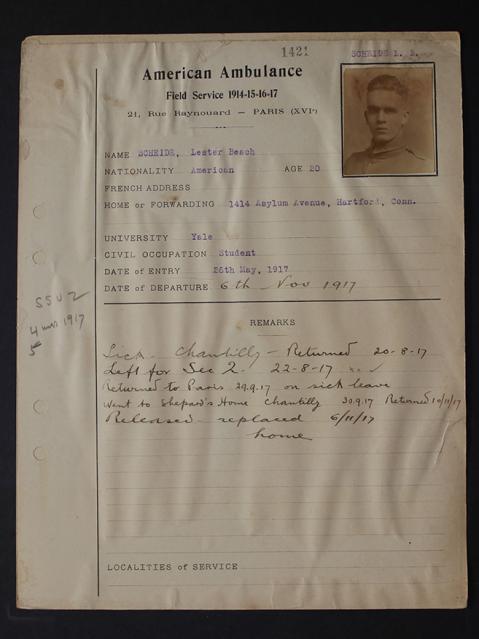 1421
SCHEIDE L. B.
American Ambulance
Field Service 1914-15-16-17
21, Rue Raynouard — PARIS (XVIe)
NAME SCHEIDE, Lester Beach
NATIONALITY American AGE 20
FRENCH ADDRESS
HOME or FORWARDING 1414 Asylum Avenue, Hartford, Conn.
UNIVERSITY Yale
CIVIL OCCUPATION Student
DATE of ENTRY 26th May, 1917
DATE of DEPARTURE 6th Nov 1917
SSU 2
4 mos 1917
REMARKS
Sick - Chantilly - Returned 20-8-17
Left for Sec 2. 22-8-17
Returned to Paris 29.9.17 on sick leave
Went to Shepard's Home Chantilly 30.9.17 Returned 10/11/17
Released - replaced 6/11/17
home
LOCALITIES of SERVICE